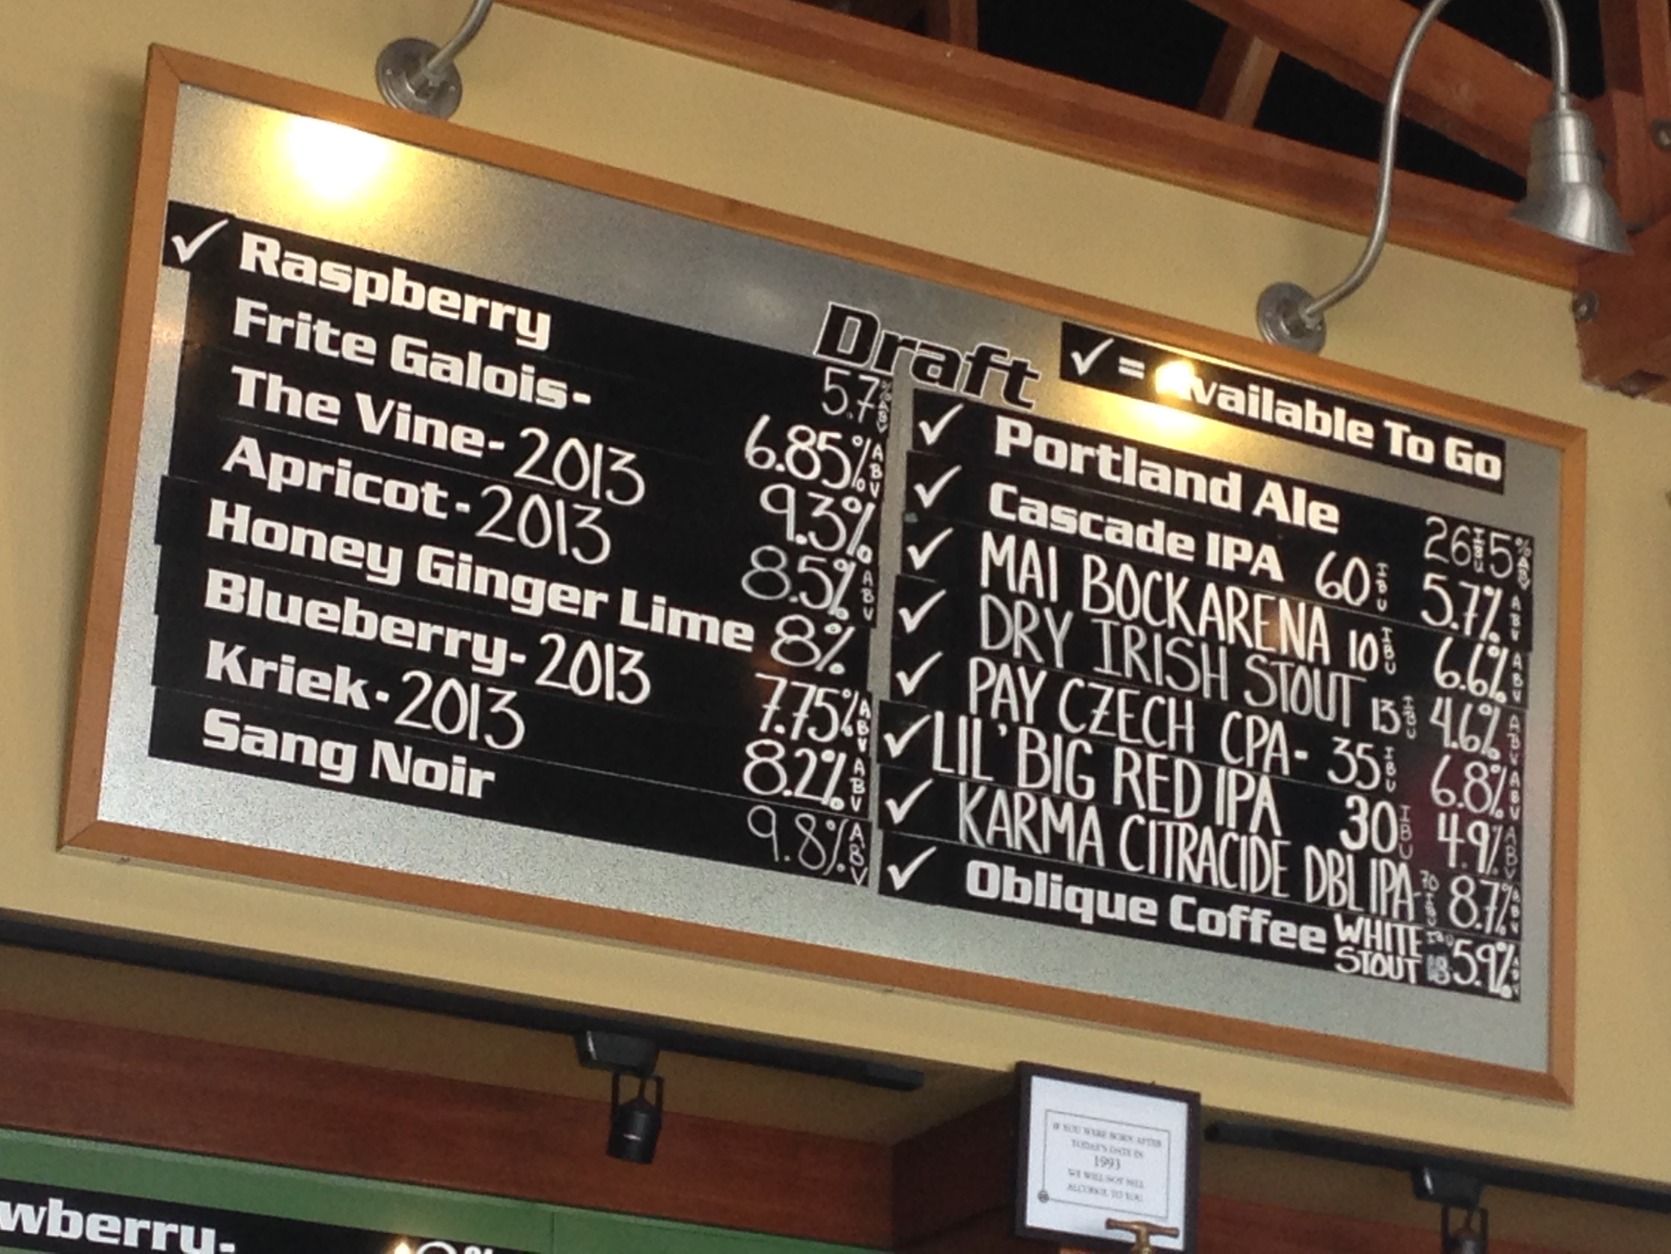 ✓ Raspberry 5.7% ABV
Frite Galois- 6.85% ABV
The Vine- 2013 9.3%
Apricot- 2013 8.5% ABV
Honey Ginger Lime 8%
Blueberry- 2013 7.75% ABV
Kriek- 2013 8.2% ABV
Sang Noir 9.8% ABV
Draft
✓ = Available To Go
✓ Portland Ale 26 IBU 5% ABV
✓ Cascade IPA 60 IBU 5.7% ABV
✓ MAI BOCKARENA 10 IBU 6.6% ABV
✓ DRY IRISH STOUT 13 IBU 4.6% ABV
✓ PAY CZECH CPA- 35 IBU 6.8% ABV
✓ LIL' BIG RED IPA 30 IBU 4.9% ABV
✓ KARMA CITRACIDE DBL IPA- 70 IBU 8.7% ABV
✓ Oblique Coffee WHITE STOUT IBU 18 5.9% ABV
IF YOU WERE BORN AFTER
TODAY'S DATE IN
1993
WE WILL NOT SELL
ALCOHOL TO YOU
wberry-